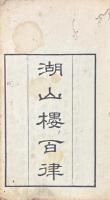 湖山樓百律